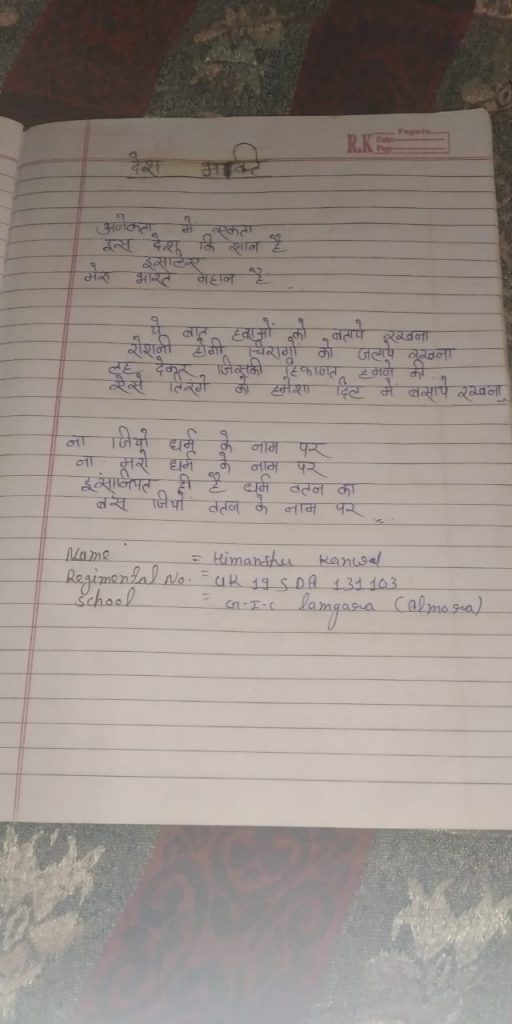 R.K
Papers
Date
Page
देश भक्ति
अनेकता में एकता
इस देश कि शान है
इसलिए
मेरा भारत महान है
ये बात हवाओं को बताये रखना
रोशनी होगी चिरागों को जलाये रखना
लहू देकर जिसकी हिफाजत हमने की
ऐसे तिरंगे को हमेशा दिल में बसाये रखना
ना जियो धर्म के नाम पर
ना मरो धर्म के नाम पर
इंसानियत ही है धर्म वतन का
बस जियों वतन के नाम पर ...
Name = Himanshu Kanwal
Regimental No. = UK 19 SDA 131103
School = G.I.C lamgara (Almora)